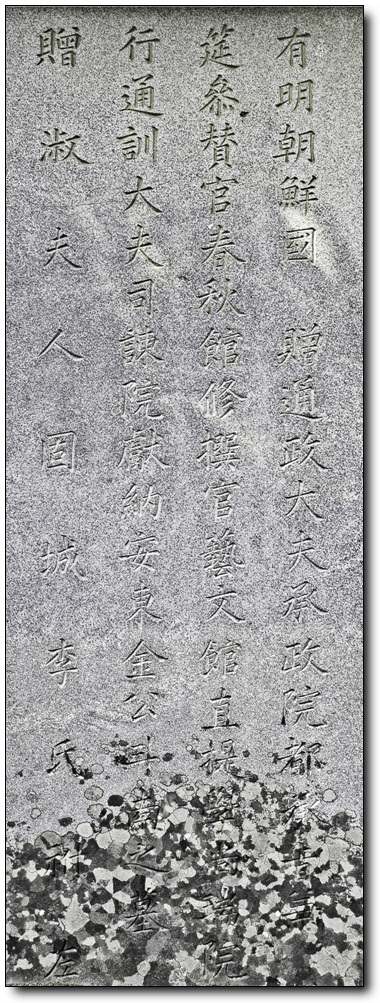 有明朝鮮國 贈通政大夫承政院都承旨
筵參贊官春秋館修撰官藝文館直提學尚瑞院
行通訓大夫司諫院獻納安東金公斗之墓
贈淑夫人固城李氏祔左